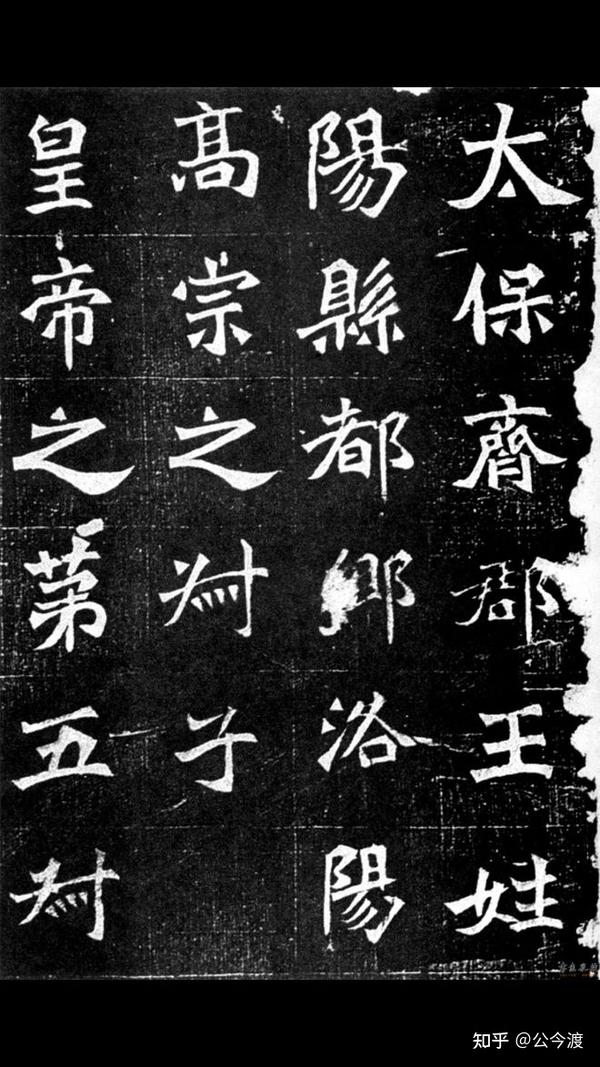 太保齊郡王姓
陽縣都鄉洛陽
髙宗之叔子
皇帝之苐五叔
知乎 @公今渡